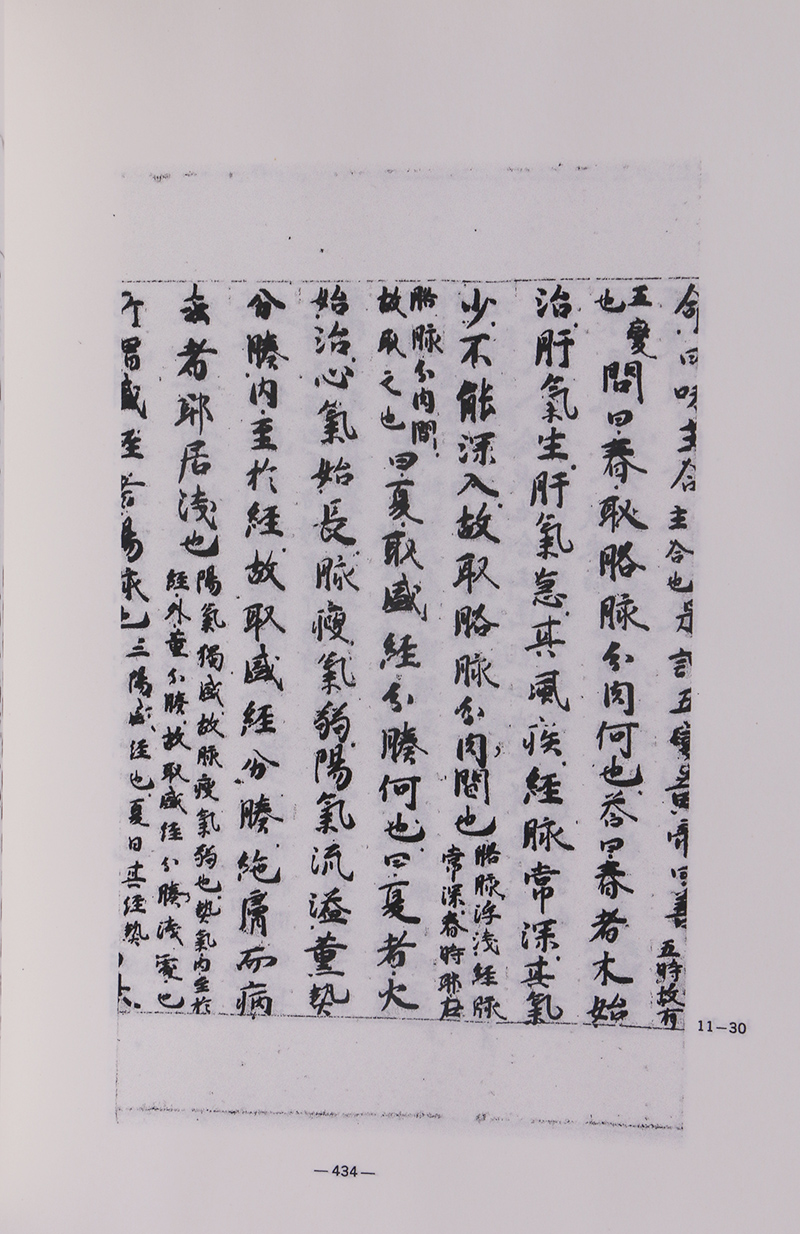 合曰味主合主合也是言五變黃帝曰善五時故有
五變也問曰春取胳脉分肉何也荅曰春者木始
治肝氣生肝氣急其風疾經脉常深其氣
少不能深入故取胳脉分肉間也胳脉浮淺經脉常深春時邪在
胳脉分肉間故取之也曰夏取盛經分腠何也曰夏者火
始治心氣始長脉瘦氣弱陽氣流溢薰熱
分腠內至於經故取盛經分腠絶膚而病
去者邪居淺也陽氣獨盛故脉瘦氣弱也熱氣內至於經外薰分腠故取盛經分腠淺處也
所胃盛
荅陽脉也三陽盛經也夏日其經熱
11-30
—434—